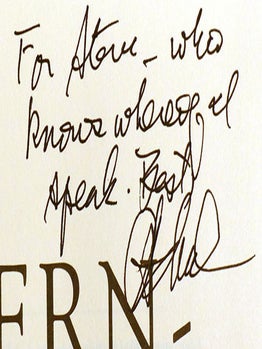 For Steve - who
knows whereof I
speak. Best,
ERN-